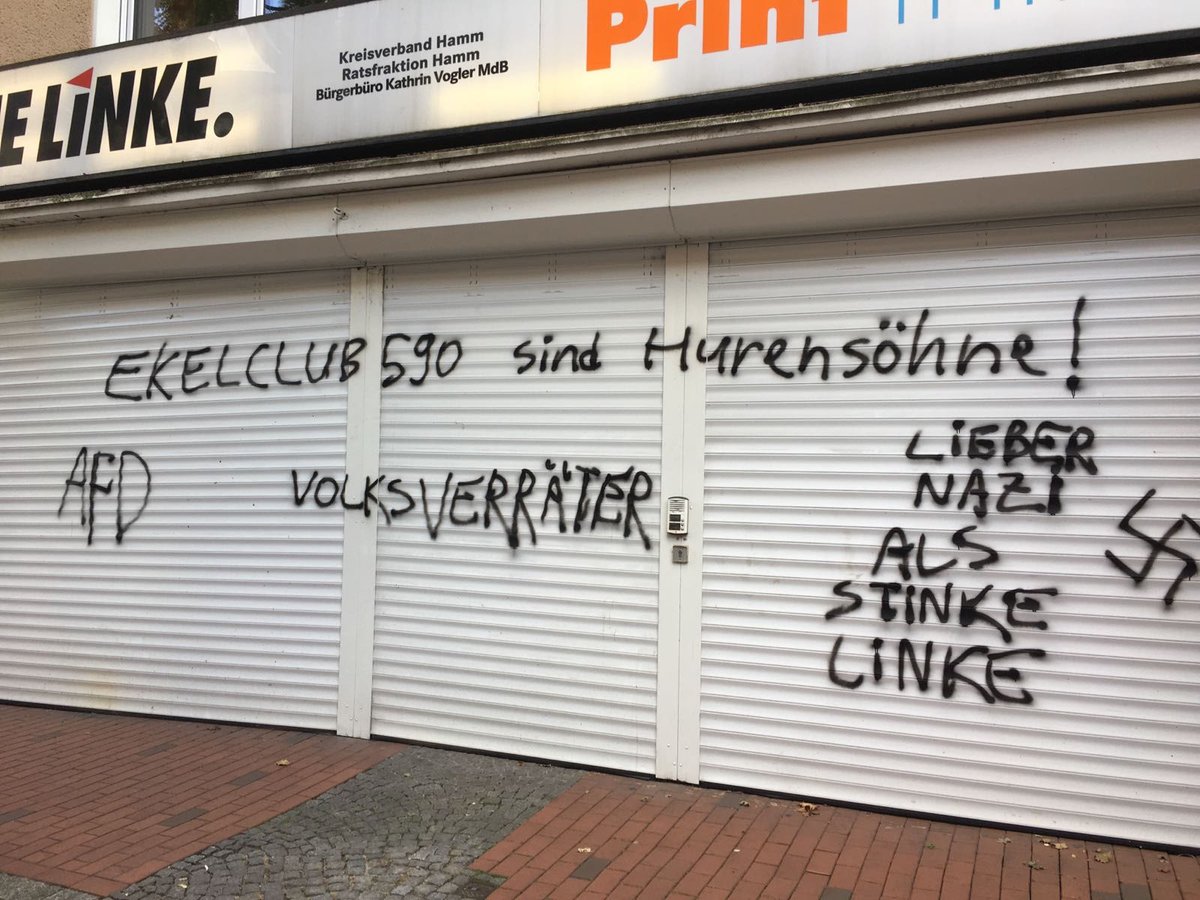 E LINKE.
Kreisverband Hamm
Ratsfraktion Hamm
Bürgerbüro Kathrin Vogler MdB
Print
EKELCLUB 590 sind Hurensöhne!
AFD
VOLKSVERRÄTER
LIEBER
NAZI
ALS
STINKE
LINKE